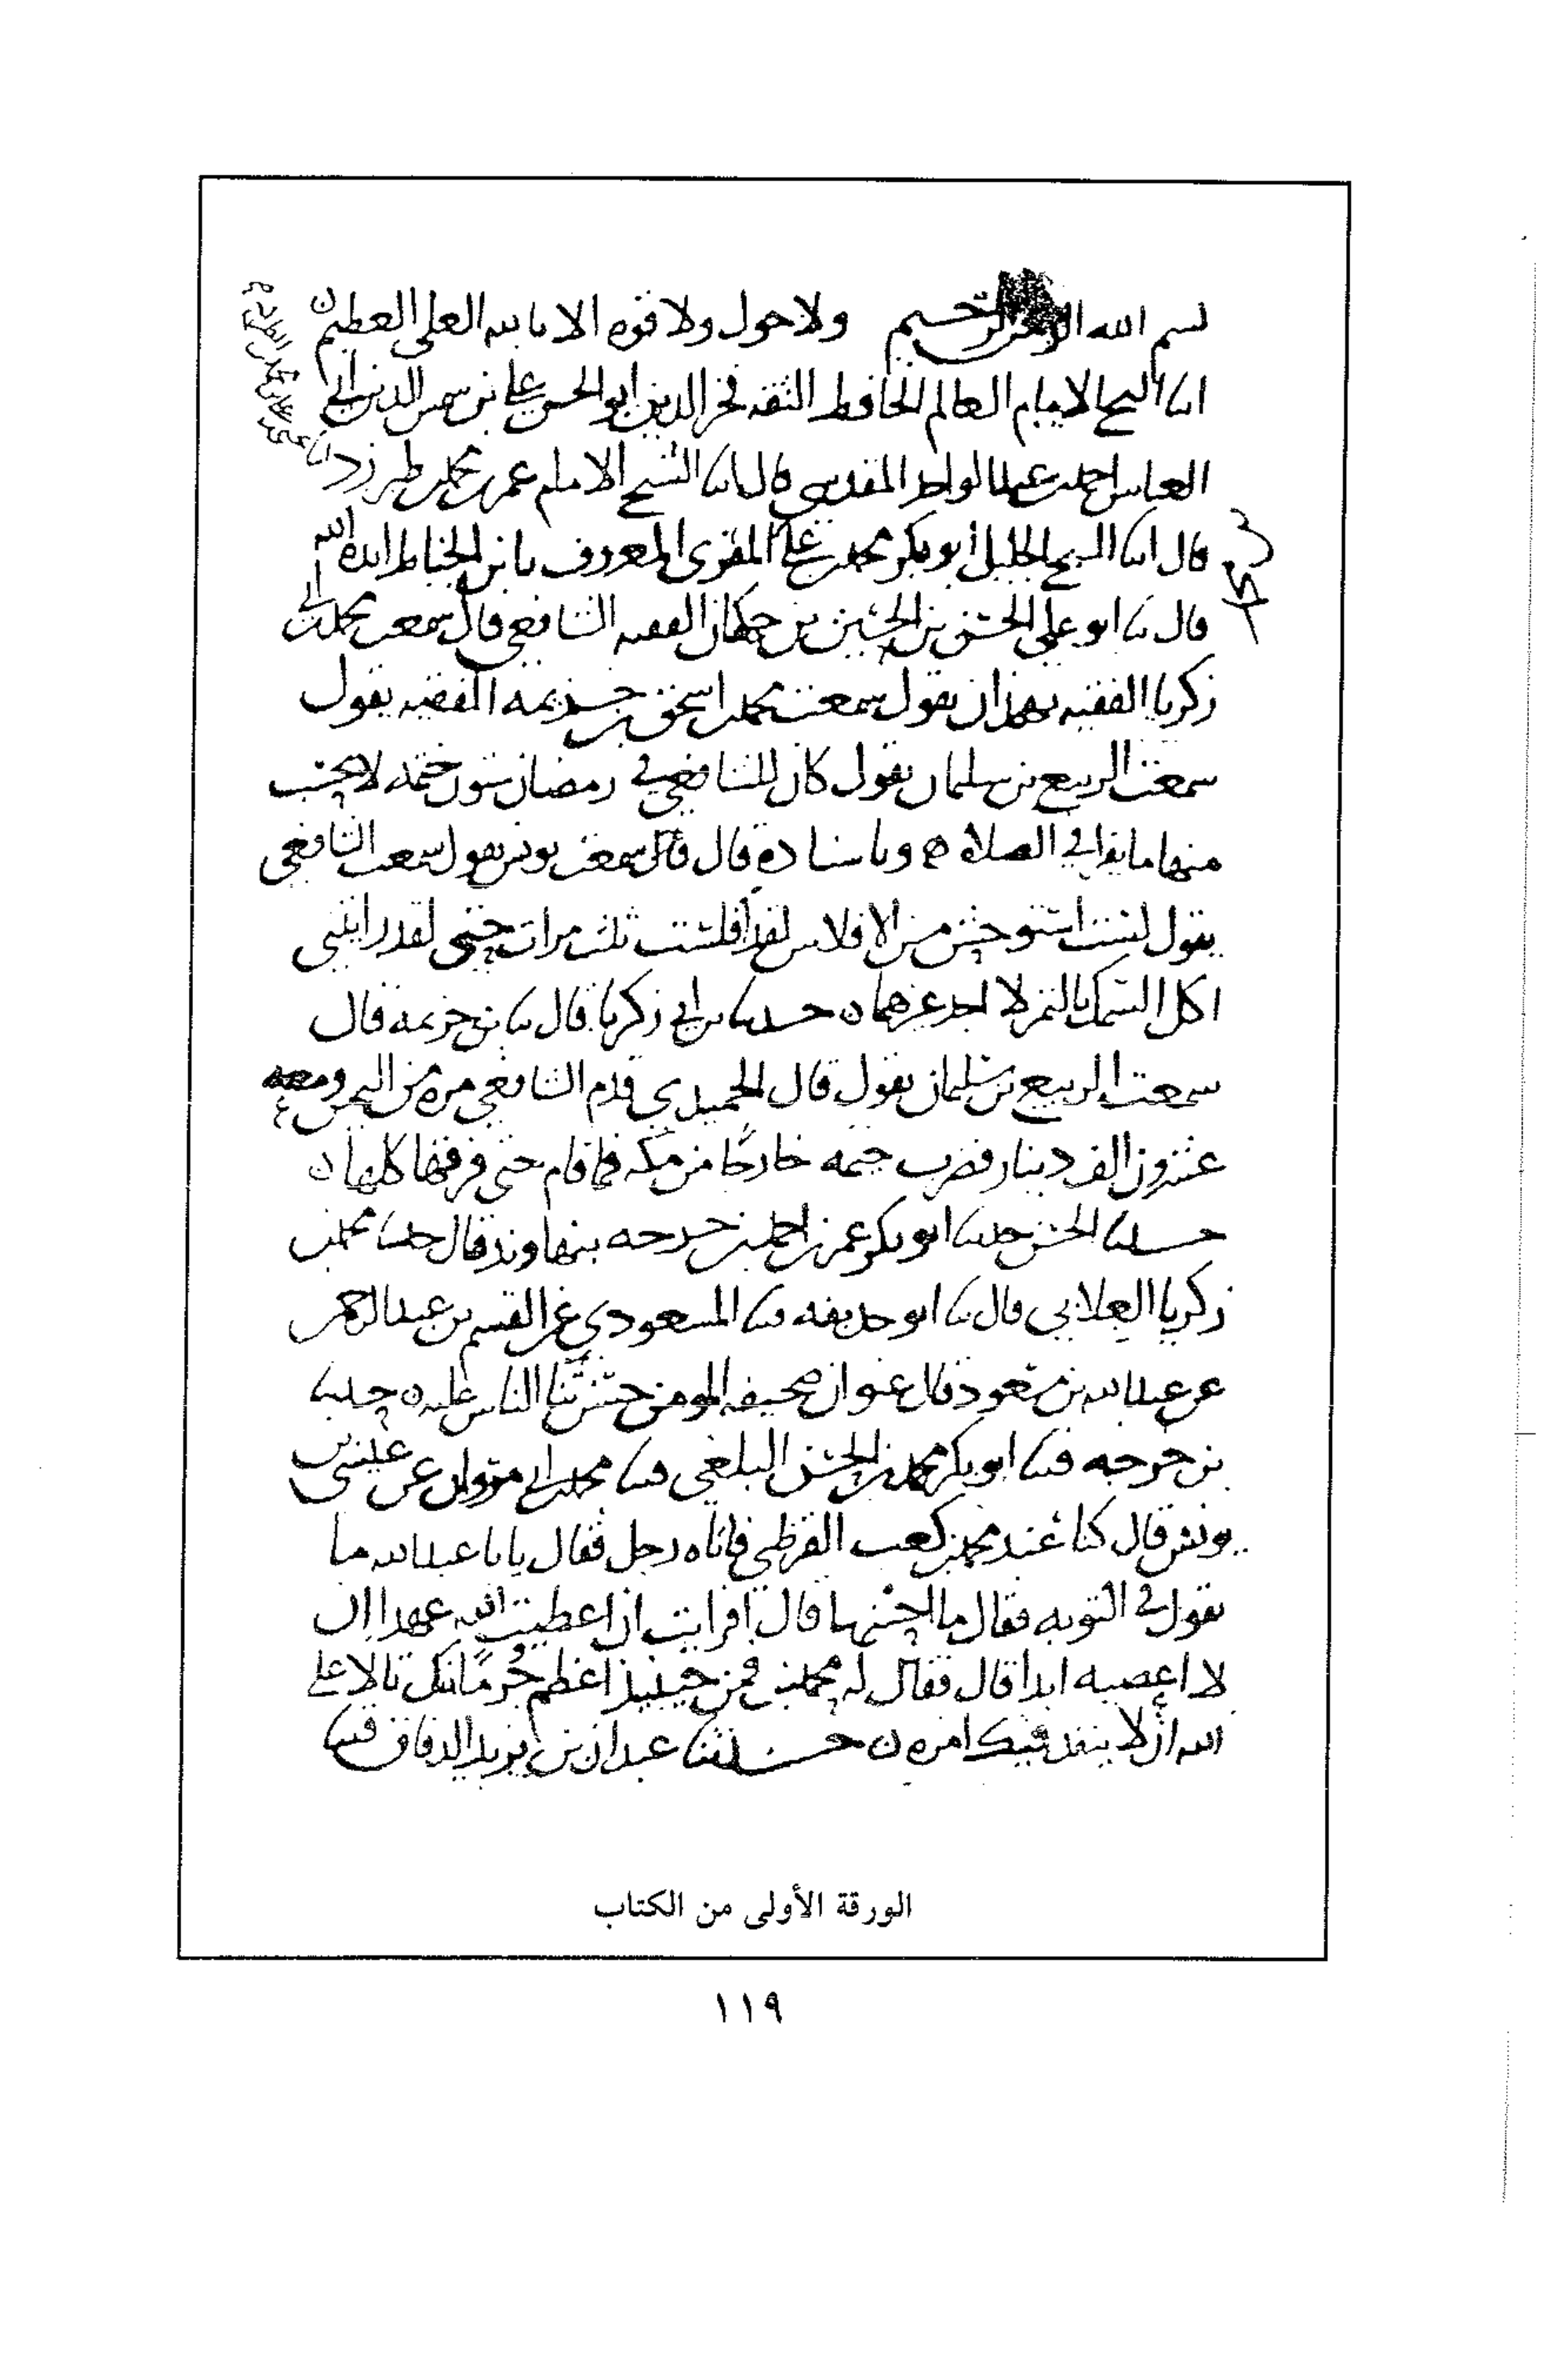 بسم الله الرحمن الرحيم ولا حول ولا قوه الا بالله العلي العظيم
انا الشيح الامام العالم الحافظ الثقه فخر الدين ابو الحسن علي بن شمس الدين ابي
العباس احمد بن عبد الواحد المقدسي قال انا الشيخ الامام عمر بن محمد بن طبرزد
قال انا الشيخ الجليل ابو بكر محمد بن علي المقرى المعروف بابن الخياط ايده الله
قال نا ابو علي الحسن بن الحسين بن حمكان الفقيه الشافعي قال سمعت محمد بن ابي
زكريا الفقيه بهمذان يقول سمعت محمد بن اسحق بن خزيمه الفقيه يقول
سمعت الربيع بن سليمان يقول كان للشافعي في رمضان ستون ختمه لا يحسب
منها ما يقرا في الصلاة وباسناده قال قال سمعت يونس يقول سمعت الشافعي
يقول لست استوحش من الافلاس لقد افلست ثلث مرات حتى لقد رايتني
اكل السمك بالتمر لا اجد غيرهما حدثنا بن ابي زكريا قال نا بن خزيمه قال
سمعت الربيع بن سليمان يقول قال الحميدي قدم الشافعي مره من اليمن ومعه
عشرون الف دينار فضرب خيمه خارجا من مكه فما قام حتى فرقها كلها
حدثنا الحسن حدثنا ابو بكر عمر بن احمد بن خرجه بنهاوند قال حدثنا محمد بن
زكريا الغلابي قال نا ابو حذيفه ثنا المسعودي عن القسم بن عبد الرحمن
عن عبد الله بن مسعود قال عنوان صحيفه المومن حسن ثنا الناس عليه حدثنا
بن خرجه ثنا ابو بكر محمد بن الحسن البلغي ثنا محمد بن ابي متوكل عن عيسى بن
يونس قال كنا عند محمد بن كعب القرظي فاتاه رجل فقال يابا عبد الله ما
تقول في التوبه فقال ما احسنها قال افرايت ان اعطيت الله عهدا ان
لا اعصيه ابدا قال فقال له محمد فمن حينيذ اعظم جرما منك تالا على
الله ان لا ينفذ فيك امره حدثنا عبدان بن يزيد الدقاق ثنا
الورقة الأولى من الكتاب
١١٩